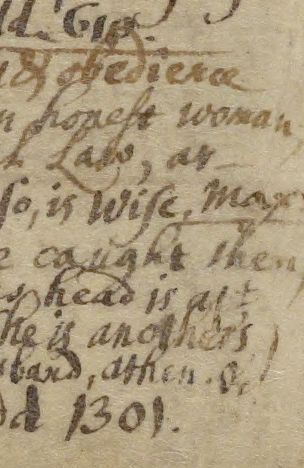 & obedience
n honest woman,
Law, as
so, is Wise, Max
e caught then
head is apt
he is anothers
sband, Athen.
1301.